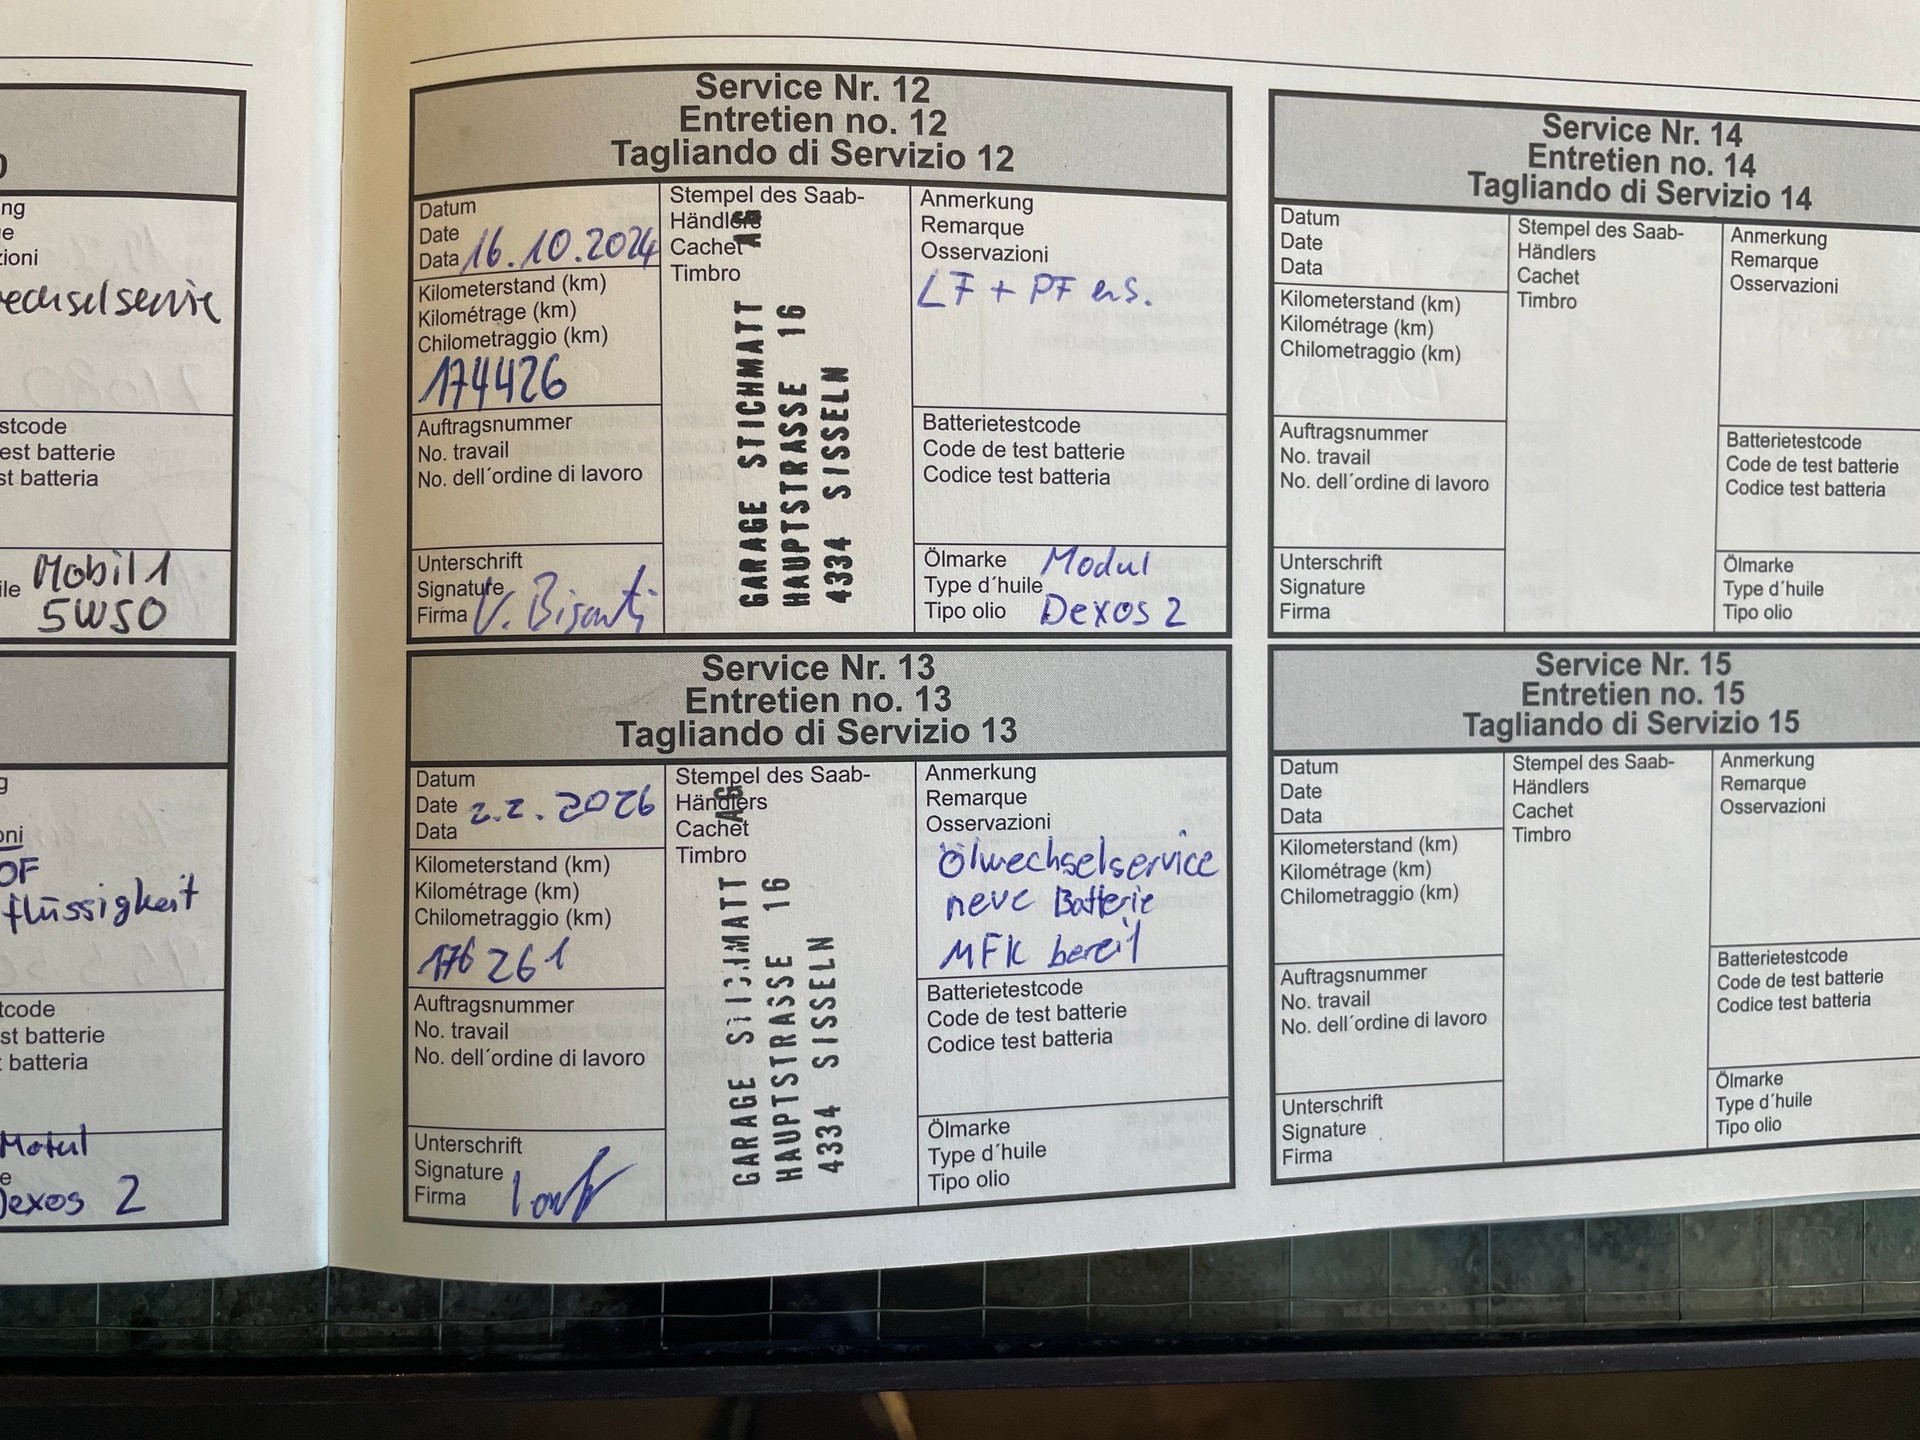 0
ng
e
zioni
echselservie
stcode
est batterie
st batteria
ile Mobil 1
5W50
g
oni
OF
flüssigkeit
tcode
st batterie
batteria
Motul
e
Dexos 2
Service Nr. 12
Entretien no. 12
Tagliando di Servizio 12
Datum
Date
Data 16.10.2024
Kilometerstand (km)
Kilométrage (km)
Chilometraggio (km)
174426
Auftragsnummer
No. travail
No. dell´ordine di lavoro
Unterschrift
Signature
Firma
Stempel des Saab-
Händlers
Cachet
Timbro
GARAGE STICHMATT AG
HAUPTSTRASSE 16
4334 SISSELN
Anmerkung
Remarque
Osservazioni
LF + PF ers.
Batterietestcode
Code de test batterie
Codice test batteria
Ölmarke Modul
Type d´huile
Tipo olio Dexos 2
Service Nr. 13
Entretien no. 13
Tagliando di Servizio 13
Datum
Date 2.2.2026
Data
Kilometerstand (km)
Kilométrage (km)
Chilometraggio (km)
176261
Auftragsnummer
No. travail
No. dell´ordine di lavoro
Unterschrift
Signature
Firma
Stempel des Saab-
Händlers
Cachet
Timbro
GARAGE STICHMATT AG
HAUPTSTRASSE 16
4334 SISSELN
Anmerkung
Remarque
Osservazioni
Ölwechselservice
neue Batterie
MFK bereit
Batterietestcode
Code de test batterie
Codice test batteria
Ölmarke
Type d´huile
Tipo olio
Service Nr. 14
Entretien no. 14
Tagliando di Servizio 14
Datum
Date
Data
Kilometerstand (km)
Kilométrage (km)
Chilometraggio (km)
Auftragsnummer
No. travail
No. dell´ordine di lavoro
Unterschrift
Signature
Firma
Stempel des Saab-
Händlers
Cachet
Timbro
Anmerkung
Remarque
Osservazioni
Batterietestcode
Code de test batterie
Codice test batteria
Ölmarke
Type d´huile
Tipo olio
Service Nr. 15
Entretien no. 15
Tagliando di Servizio 15
Datum
Date
Data
Kilometerstand (km)
Kilométrage (km)
Chilometraggio (km)
Auftragsnummer
No. travail
No. dell´ordine di lavoro
Unterschrift
Signature
Firma
Stempel des Saab-
Händlers
Cachet
Timbro
Anmerkung
Remarque
Osservazioni
Batterietestcode
Code de test batterie
Codice test batteria
Ölmarke
Type d´huile
Tipo olio